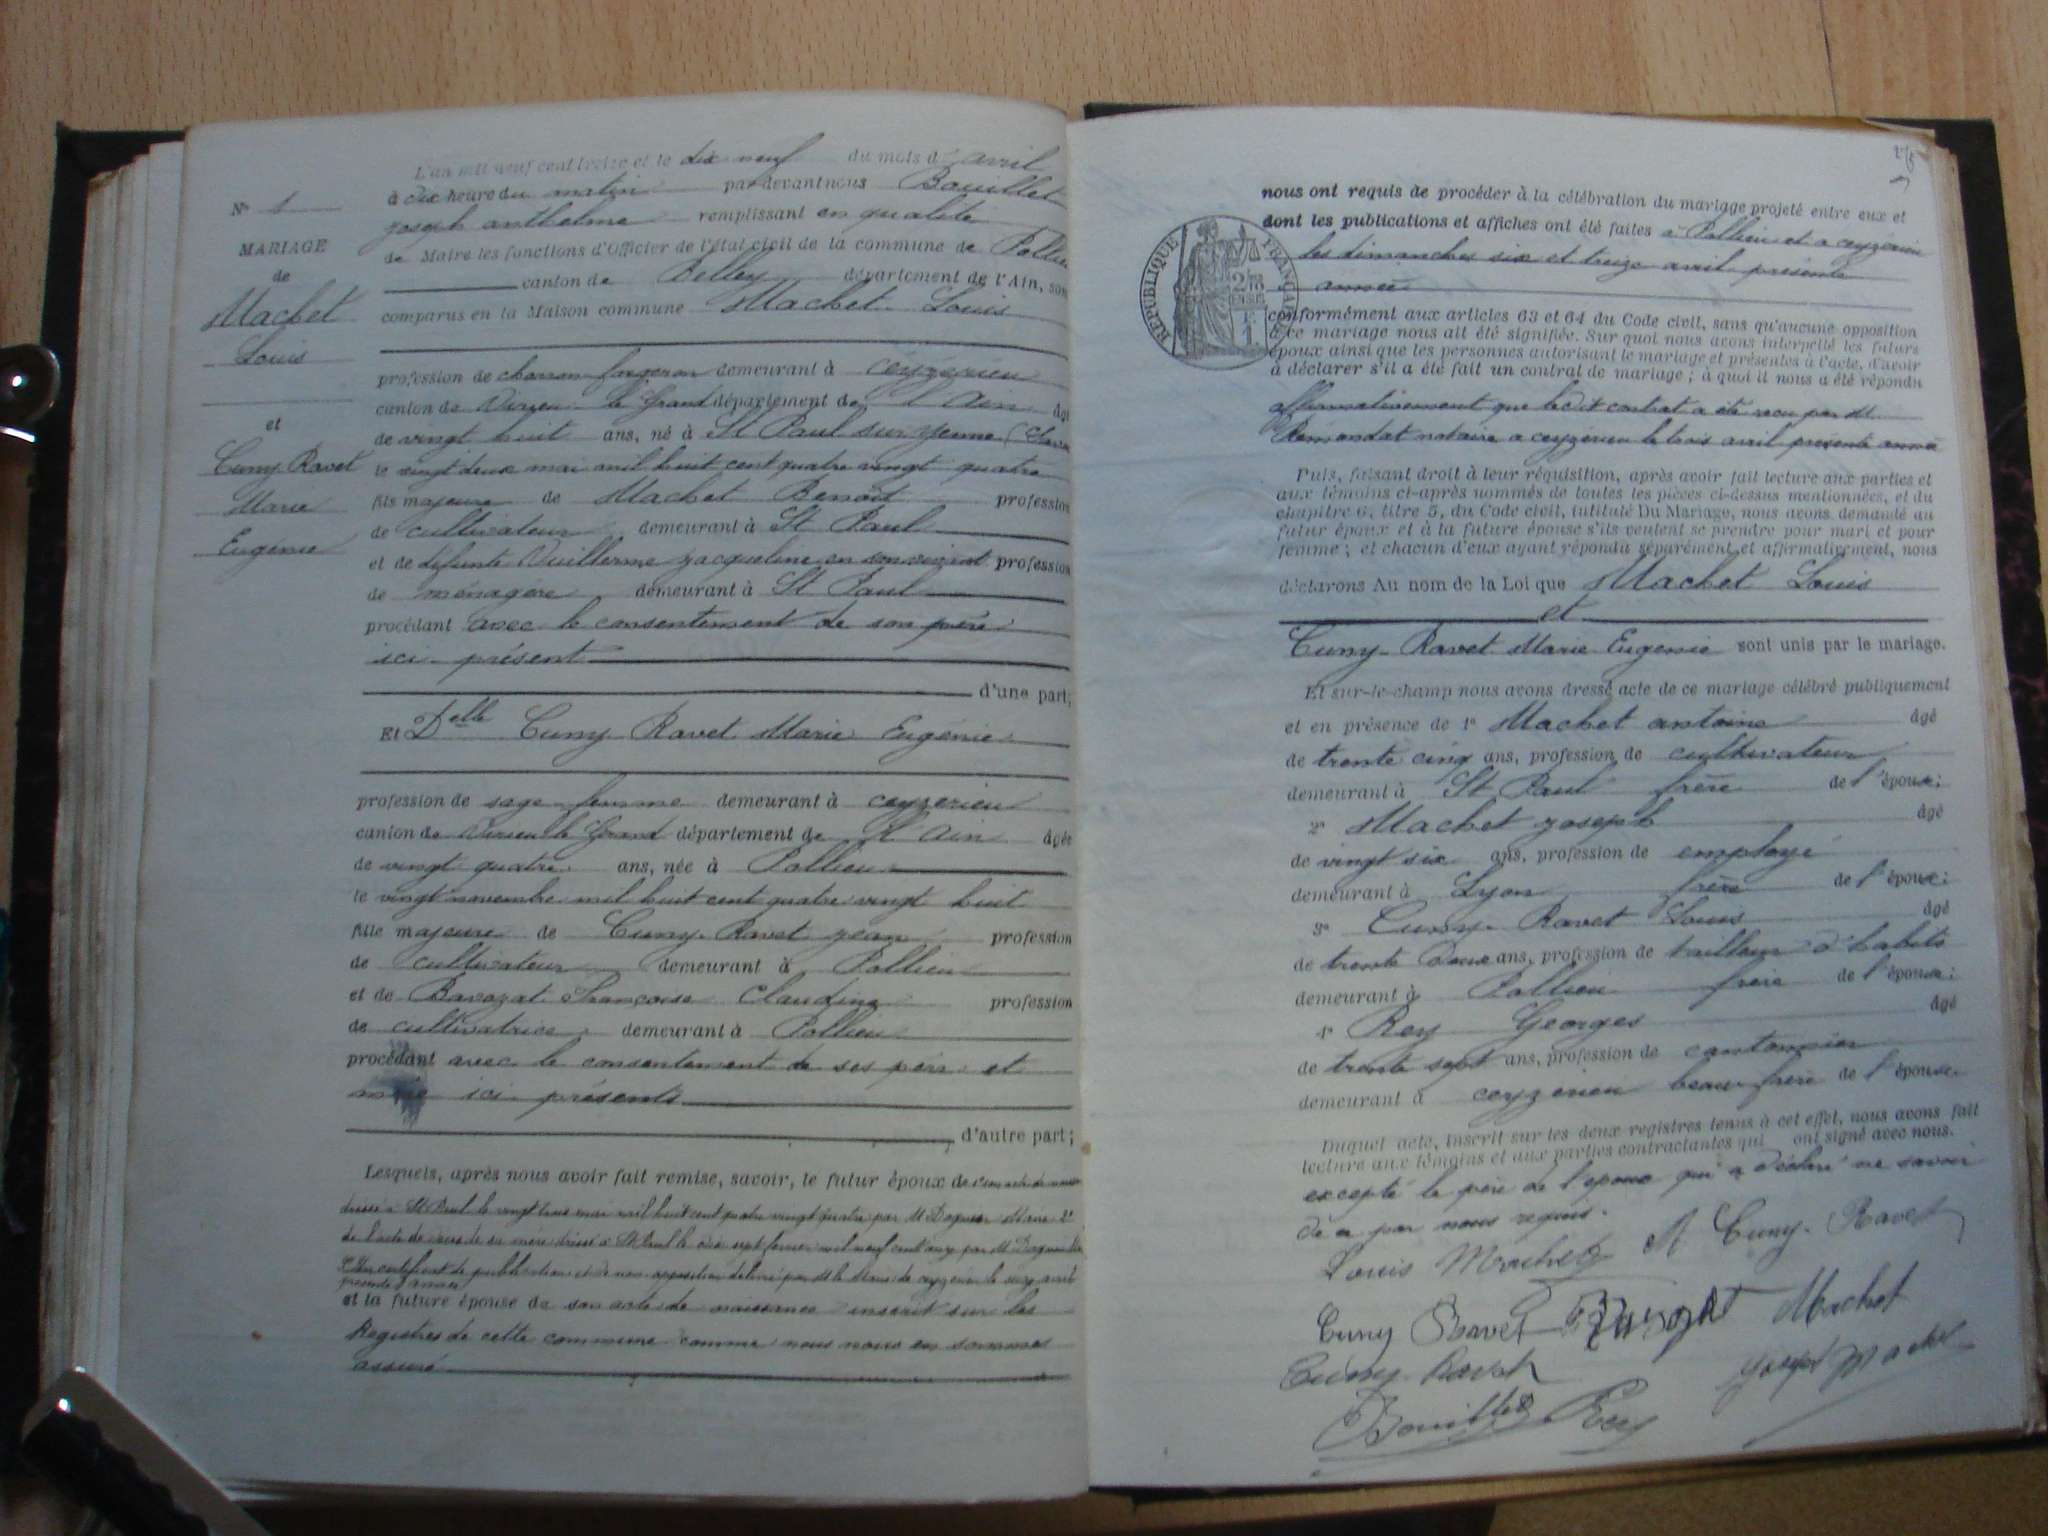 N° 1
MARIAGE
de
Machet
Louis
et
Cuny Ravet
Marie
Eugénie
L'an mil neuf cent treize et le dix neuf du mois d'avril
à dix heure du matin par devant nous Bouillet
joseph anthelme remplissant en qualité
de Maire les fonctions d'Officier de l'état civil de la commune de Pollieu
canton de Belley département de l'Ain, sont
comparus en la Maison commune Machet Louis
profession de charron forgeron demeurant à ceyzerieu
canton de Virieu le Grand département de l'Ain âgé
de vingt huit ans, né à St Paul sur Yenne (Savoie
le vingt deux mai mil huit cent quatre vingt quatre
fils majeure de Machet Benoît profession
de cultivateur demeurant à St Paul
et de défunte Vuillerme jacqueline en son vivant profession
de ménagère demeurant à St Paul
procédant avec le consentement de son père
ici présent
d'une part;
Et Delle Cuny Ravet Marie Eugénie
profession de sage femme demeurant à ceyzerieu
canton de Virieu le Grand département de l'Ain âgée
de vingt quatre ans, née à Pollieu
le vingt novembre mil huit cent quatre vingt huit
fille majeure de Cuny-Ravet jean profession
de cultivateur demeurant à Pollieu
et de Bavozat Françoise Claudine profession
de cultivatrice demeurant à Pollieu
procédant avec le consentement de ses père et
mère ici présents
d'autre part;
Lesquels, après nous avoir fait remise, savoir, le futur époux de son acte de naissance
dressé à St Paul le vingt trois mai mil huit cent quatre vingt quatre par M Maire 2°
de l'acte de décès de sa mère dressé à St Paul le dix sept février mil neuf cent par M
3° Un certificat de publication et de non opposition délivré par M le Maire de ceyzerieu le avril
présente année
et la future épouse de son acte de naissance inscrit sur les
Registres de cette commune comme nous nous en sommes
assuré
nous ont requis de procéder à la célébration du mariage projeté entre eux et
dont les publications et affiches ont été faites à Pollieu et a ceyzerieu
les dimanches six et treize avril présente
année
RÉPUBLIQUE FRANÇAISE
conformément aux articles 63 et 64 du Code civil, sans qu'aucune opposition
à ce mariage nous ait été signifiée. Sur quoi nous avons interpellé les futurs
époux ainsi que les personnes autorisant le mariage et présentes à l'acte, d'avoir
à déclarer s'il a été fait un contrat de mariage; à quoi il nous a été répondu
affirmativement que ledit contrat a été recu par M
Rémondat notaire a ceyzerieu le trois avril présente année
Puis, faisant droit à leur réquisition, après avoir fait lecture aux parties et
aux témoins ci-après nommés de toutes les pièces ci-dessus mentionnées, et du
chapitre 6, titre 5, du Code civil, intitulé Du Mariage, nous avons demandé au
futur époux et à la future épouse s'ils veulent se prendre pour mari et pour
femme; et chacun d'eux ayant répondu séparément et affirmativement, nous
déclarons Au nom de la Loi que Machet Louis
et
Cuny-Ravet Marie Eugénie sont unis par le mariage.
Et sur-le-champ nous avons dressé acte de ce mariage célébré publiquement
et en présence de 1° Machet antoine âgé
de trente cinq ans, profession de cultivateur
demeurant à St Paul frère de l'époux;
2° Machet joseph âgé
de vingt six ans, profession de employé
demeurant à Lyon frère de l'époux;
3° Cuny-Ravet Louis âgé
de trente deux ans, profession de tailleur d'habits
demeurant à Pollieu frère de l'épouse;
4° Rey Georges âgé
de trente sept ans, profession de cantonnier
demeurant à ceyzerieu beau-frère de l'épouse.
Duquel acte, inscrit sur les deux registres tenus à cet effet, nous avons fait
lecture aux témoins et aux parties contractantes qui ont signé avec nous.
excepté le père de l'époux qui a déclaré ne savoir
de a par nous requis.
Louis Machet M Cuny-Ravet
Cuny Ravet Machet
Cuny Ravet joseph Machet
Bouillet Rey